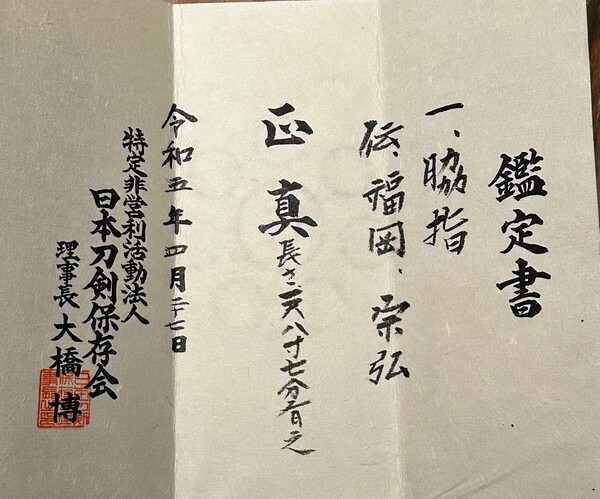 鑑定書
一、脇指
伝、福岡、宗弘
正真
長さ、一尺八寸七分有之
令和五年四月二十七日
特定非営利活動法人
日本刀剣保存会
理事長 大橋博